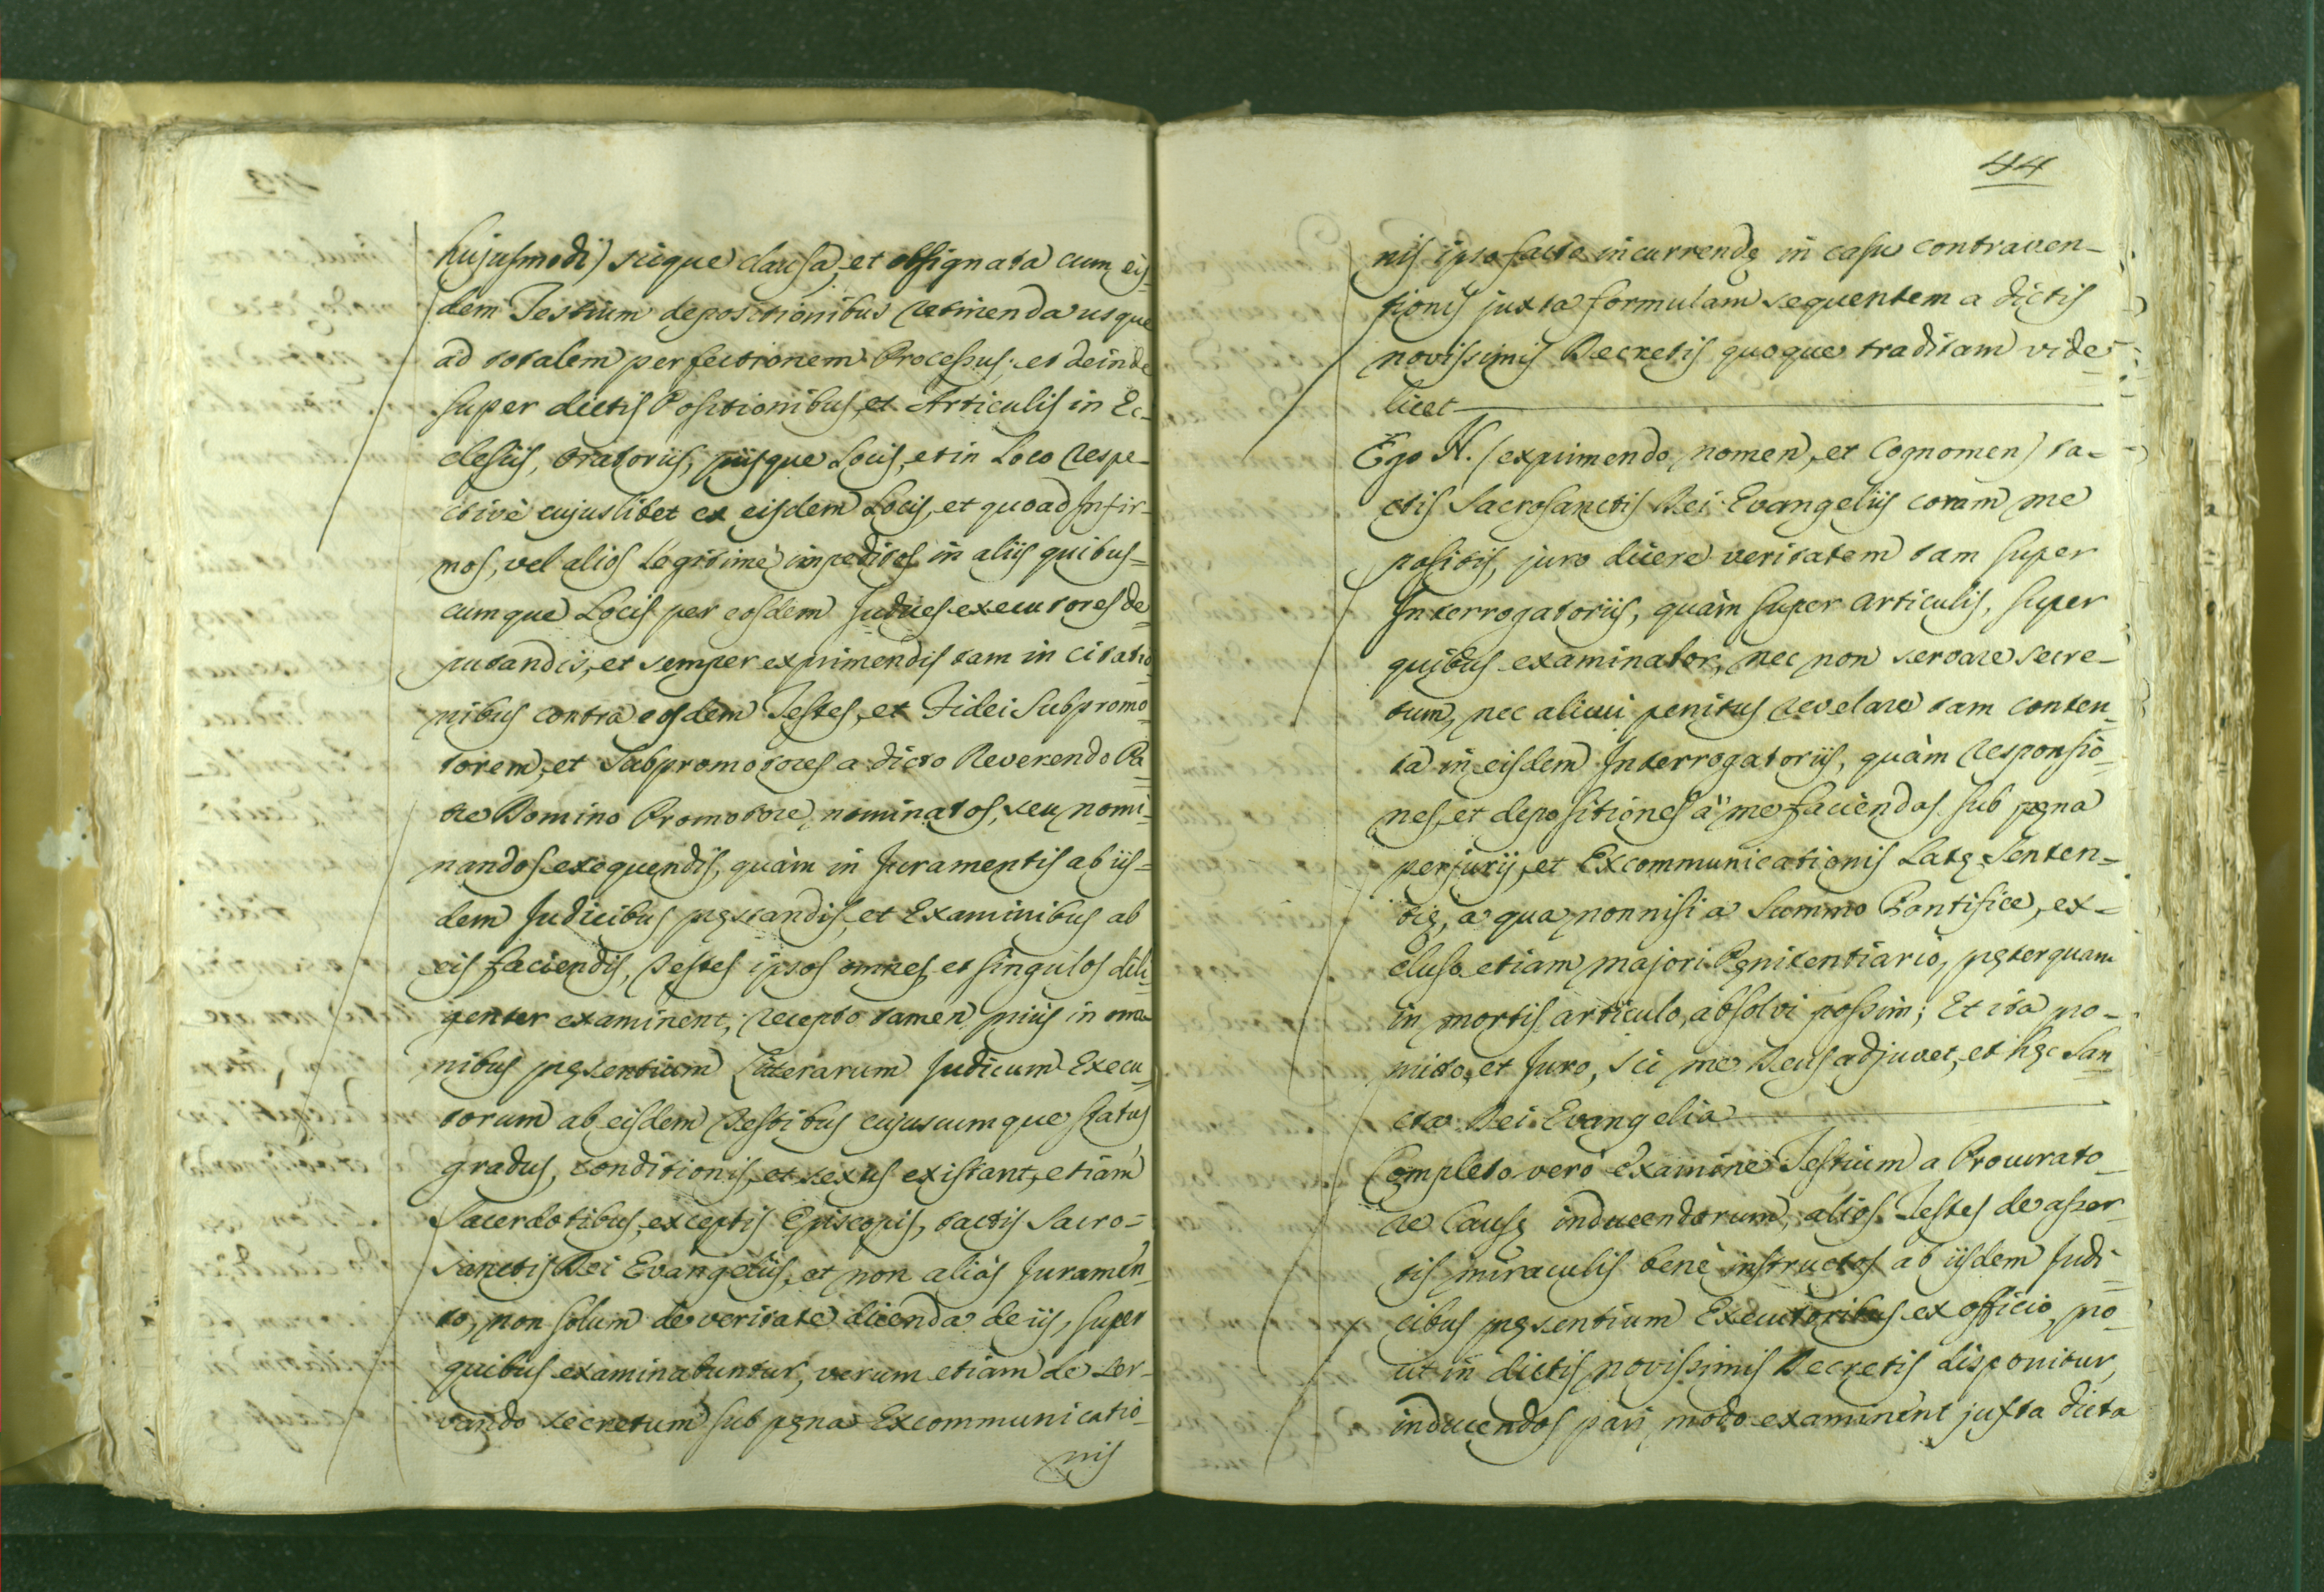 hujusmodi) sicque clausa, et obsignata cum eis-
dem Testium depositionibus retinenda usque
ad totalem perfectionem Processus: et deinde
super dictis Positionibus, et Articulis in Ec-
clesiis, Oratoriis, piisque Locis, et in Loco respe-
ctivè cujuslibet ex eisdem Locis, et quoad Infir-
mos, vel alios legitimè impeditos in aliis quibus-
cumque Locis per eosdem Judices executores de-
putandis, et semper exprimendis tam in citatio-
nibus contra eosdem Testes, et Fidei Subpromo-
torem, et Subpromotores a dicto Reverendo Pa-
tre Domino Promotore nominatos, seu nomi-
nandos exequendis, quàm in Juramentis ab iis-
dem Judicibus pręstandis, et Examinibus ab
eis faciendis, Testes ipsos omnes, et singulos dili-
genter examinent, recepto tamen priùs in ma-
nibus pręsentium Litterarum Judicum Execu-
torum ab eisdem Testibus cujuscumque status
gradus, conditionis, et sexus existant, etiam
Sacerdotibus, exceptis Episcopis, tactis Sacro-
sanctis Dei Evangeliis, et non aliàs Juramen-
to, non solum de veritate dicenda de iis, super
quibus examinabuntur, verum etiam de ser-
vando secretum sub pęna Excommunicatio-
nis
44
nis ipso facto incurrendę in casu contraven-
tionis juxta formulam sequentem a dictis
novissimis Decretis quoque traditam vide-
licet
Ego N. (exprimendo nomen, et Cognomen) ta-
ctis Sacrosanctis Dei Evangeliis coram me
positis, juro dicere veritatem tam super
Interrogatoriis, quàm super articulis, super
quibus examinabor, nec non servare secre-
tum, nec alicui penitus revelare tam conten-
ta in eisdem Interrogatoriis, quàm responsio-
nes, et depositiones à me faciendas sub pęna
perjurij, et Excommunicationis Latę Senten-
tię, a qua nonnisi a Summo Pontifice, ex-
cluso etiam majori Pęnitentiario, pręterquam
in mortis articulo, absolvi possim; Et ita pro-
mitto, et Juro, sic me Deus adjuvet, et hęc San-
cta Dei Evangelia
Completo verò examine Testium a Procurato-
re Causę inducendorum, alios Testes de asser-
tis miraculis benè instructos ab iisdem Judi-
cibus pręsentium Executoribus ex officio, pro-
ut in dictis novissimis Decretis disponitur,
inducendos pari modo examinent juxta dicta